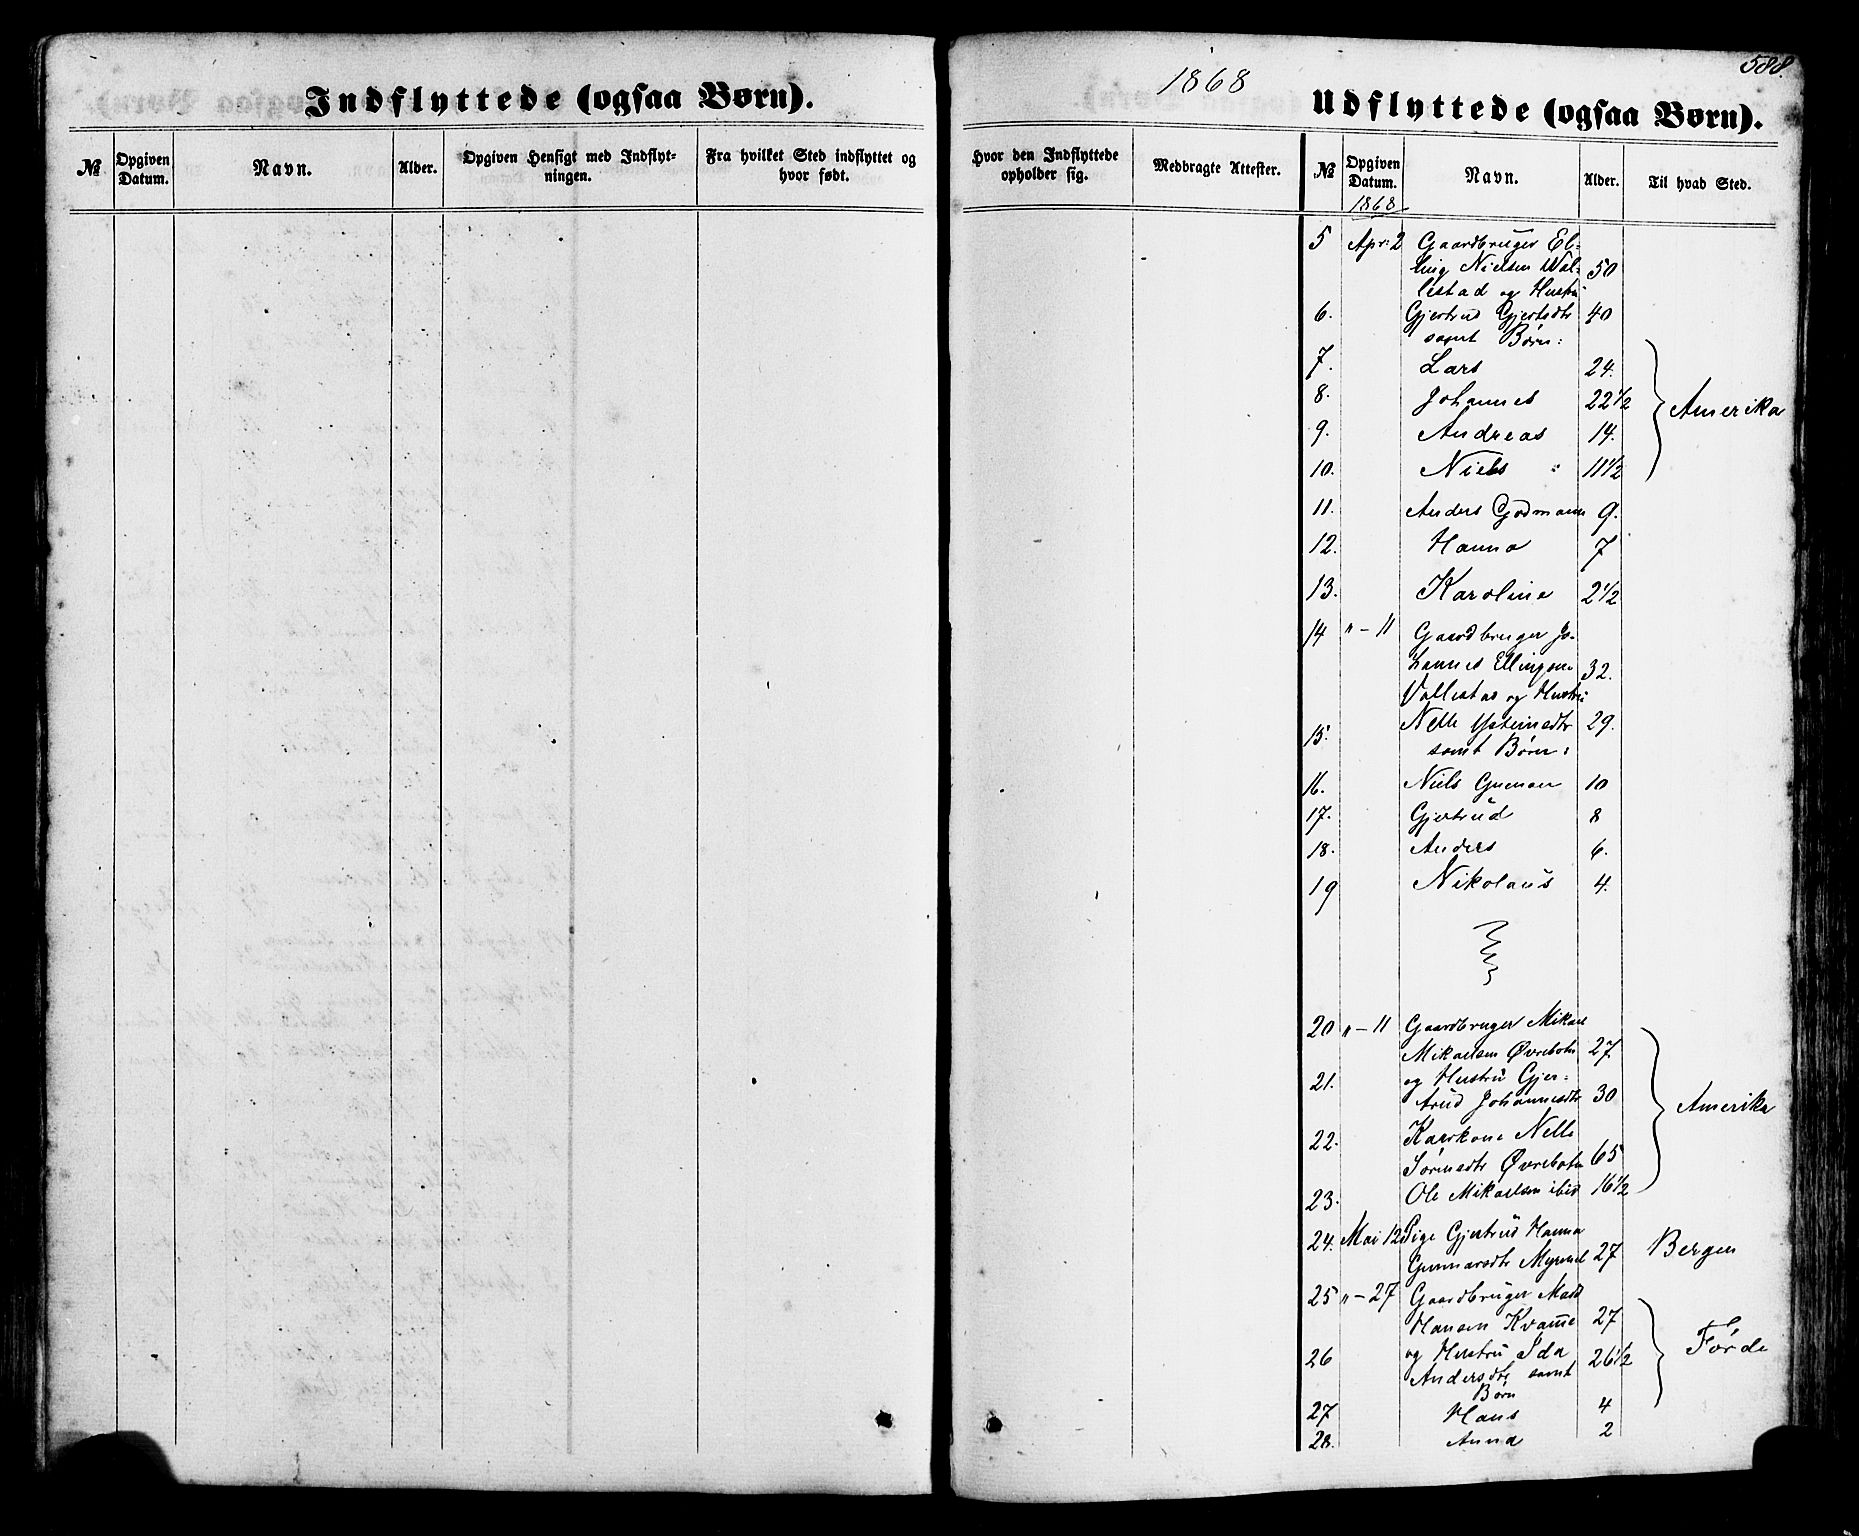 Indflyttede (ogsaa Børn).
№
Opgiven Datum.
Navn.
Alder.
Opgiven Hensigt med Indflyt-
ningen.
Fra hvilket Sted indflyttet og
hvor født.
1868
588.
Udflyttede (ogsaa Børn).
Hvor den Indflyttede
opholder sig.
Medbragte Attester.
№
Opgiven
Datum.
Navn.
Alder.
Til hvad Sted.
1868
5 Apr: 2 Gaardbruger El-
ling Nielsen Wal- 50
lestad og Hustru
6. Gjertrud Gjertsdtr 40
samt Børn:
7. Lars 24.
8. Johannes 22 1/2
Amerika
9. Andreas 14.
10. Niels 11 1/2
11. Anders Godmann 9.
12. Hanna 7
13. Karoline 2 1/2
14 " - 11 Gaardbruger Jo-
hannes Ellingsen 32.
Vallestad og Hustru
15. Nelle Ysteinsdtr 29.
samt Børn:
16. Niels 10
17. Gjertrud 8
18. Anders 6.
19 Nikolaus 4.
20 " - 11 Gaardbruger Mikael
Mikaelsen Øvrebotn 27.
21. og Hustru Gjer-
trud Johannesdtr 30
Amerika
22. Kaarkone Nelle
Sørensdtr Øvrebotn 65
23. Ole Mikaelsen ibid 16 1/2
24. Mai 12 Pige Gjertrud Hanna
Gunnarsdtr Myrmel 27 Bergen
25 " - 27 Gaardbruger Mads
Hansen Kvamme 27
Førde
26 og Hustru Ida 26 1/2
Andersdtr samt
Børn
27 Hans 4
28. Anna 2